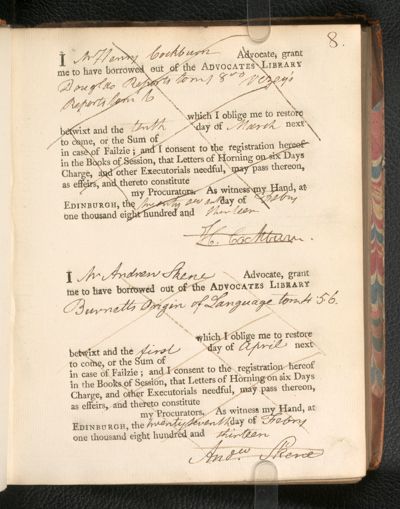 8.
I Mr Henry Cockburn Advocate, grant
me to have borrowed out of the ADVOCATES LIBRARY
Douglas Reports tom 1 8vo Vezey's
Reports tom 6
which I oblige me to restore
betwixt and the tenth day of March next
to come, or the Sum of
in case of Failzie; and I consent to the registration hereof
in the Books of Session, that Letters of Horning on six Days
Charge, and other Executorials needful, may pass thereon,
as effeirs, and thereto constitute
my Procurators. As witness my Hand, at
EDINBURGH, the twenty second day of Febry
one thousand eight hundred and thirteen
H. Cockburn.
I Mr Andrew Skene Advocate, grant
me to have borrowed out of the ADVOCATES LIBRARY
Burnetts Origin of Language tom 4 5 6.
which I oblige me to restore
betwixt and the first day of April next
to come, or the Sum of
in case of Failzie; and I consent to the registration hereof
in the Books of Session, that Letters of Horning on six Days
Charge, and other Executorials needful, may pass thereon,
as effeirs, and thereto constitute
my Procurators. As witness my Hand, at
EDINBURGH, the twenty seventh day of Febry
one thousand eight hundred and thirteen
Andw Skene